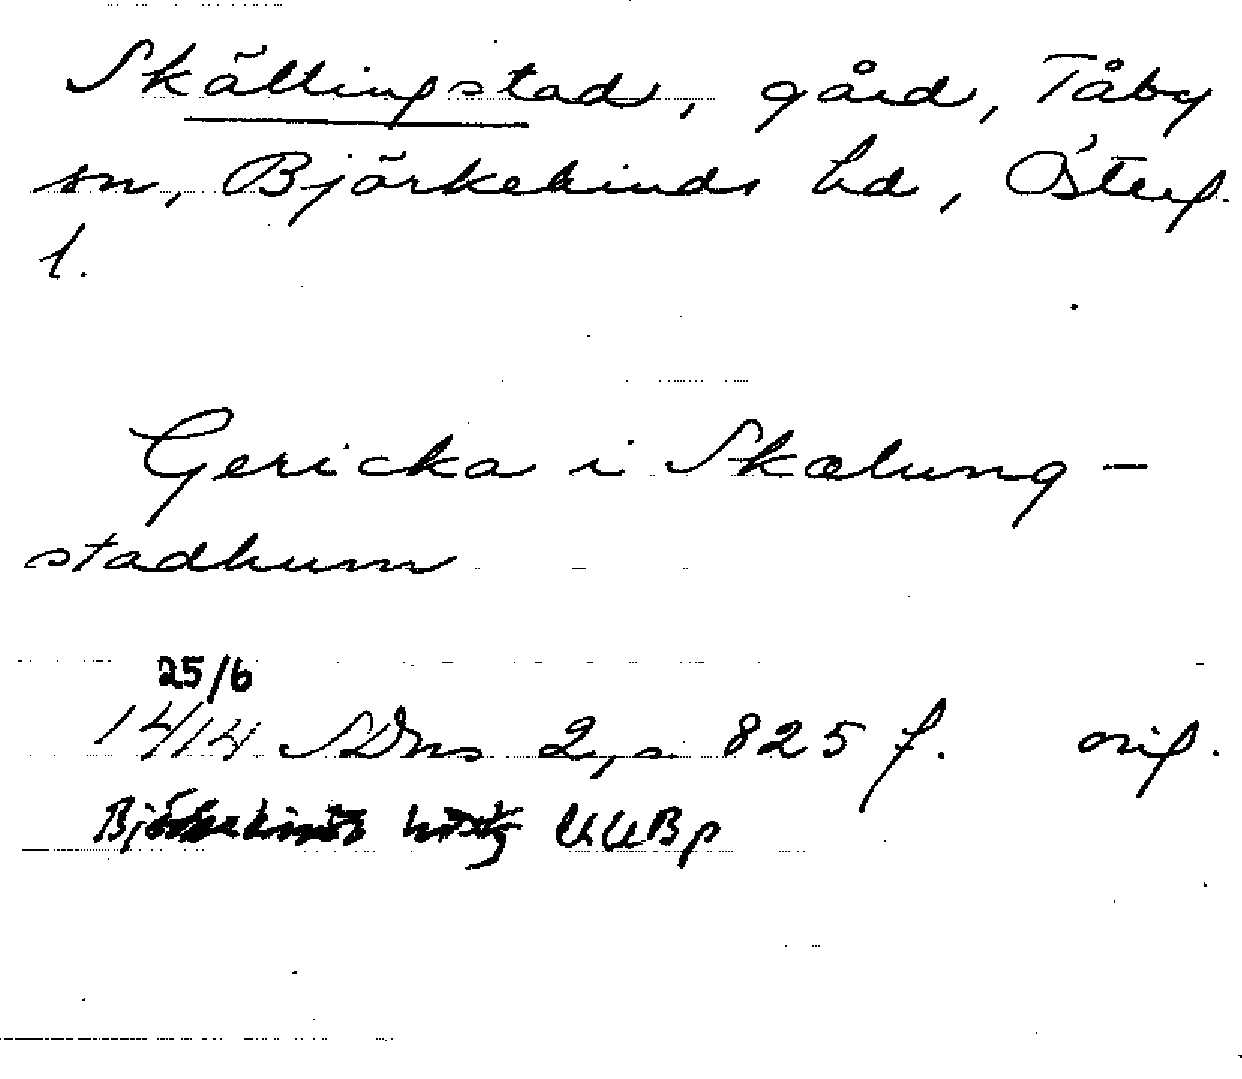 Skällingstad, gård, Tåby
sn, Björkekinds hd, Österg.
l.
Gericka i Skælung-
stadhum
25/6
1414 SDns 2, s. 825 f. orig.
Björkekinds UUBp